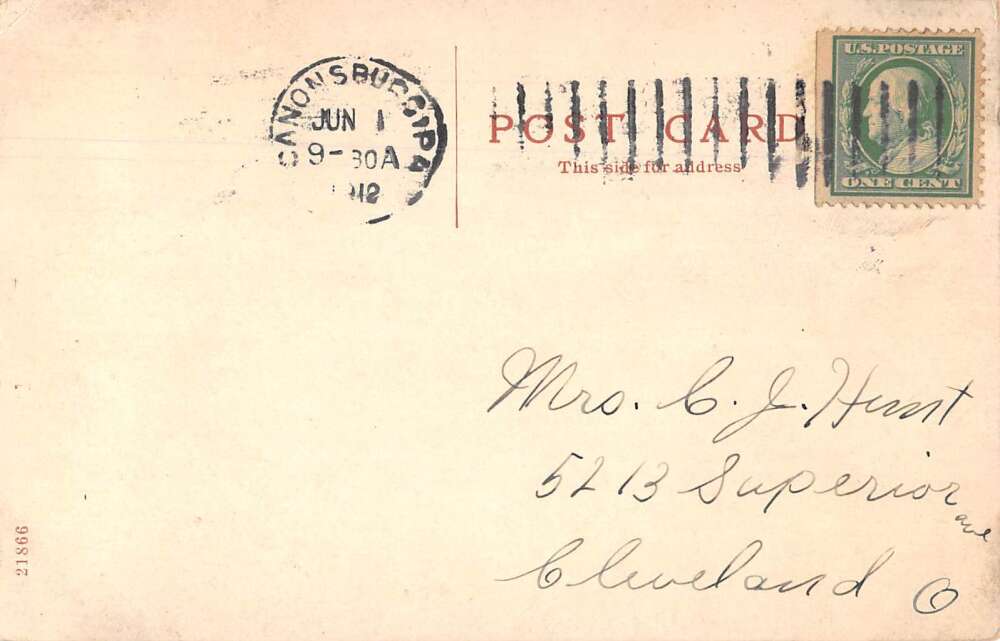 CANONSBURG, PA
JUN 1
9-30A
1912
POST CARD
This side for address
U.S. POSTAGE
ONE CENT
Mrs. C. J. Hunt
5213 Superior
ave
Cleveland O
21866